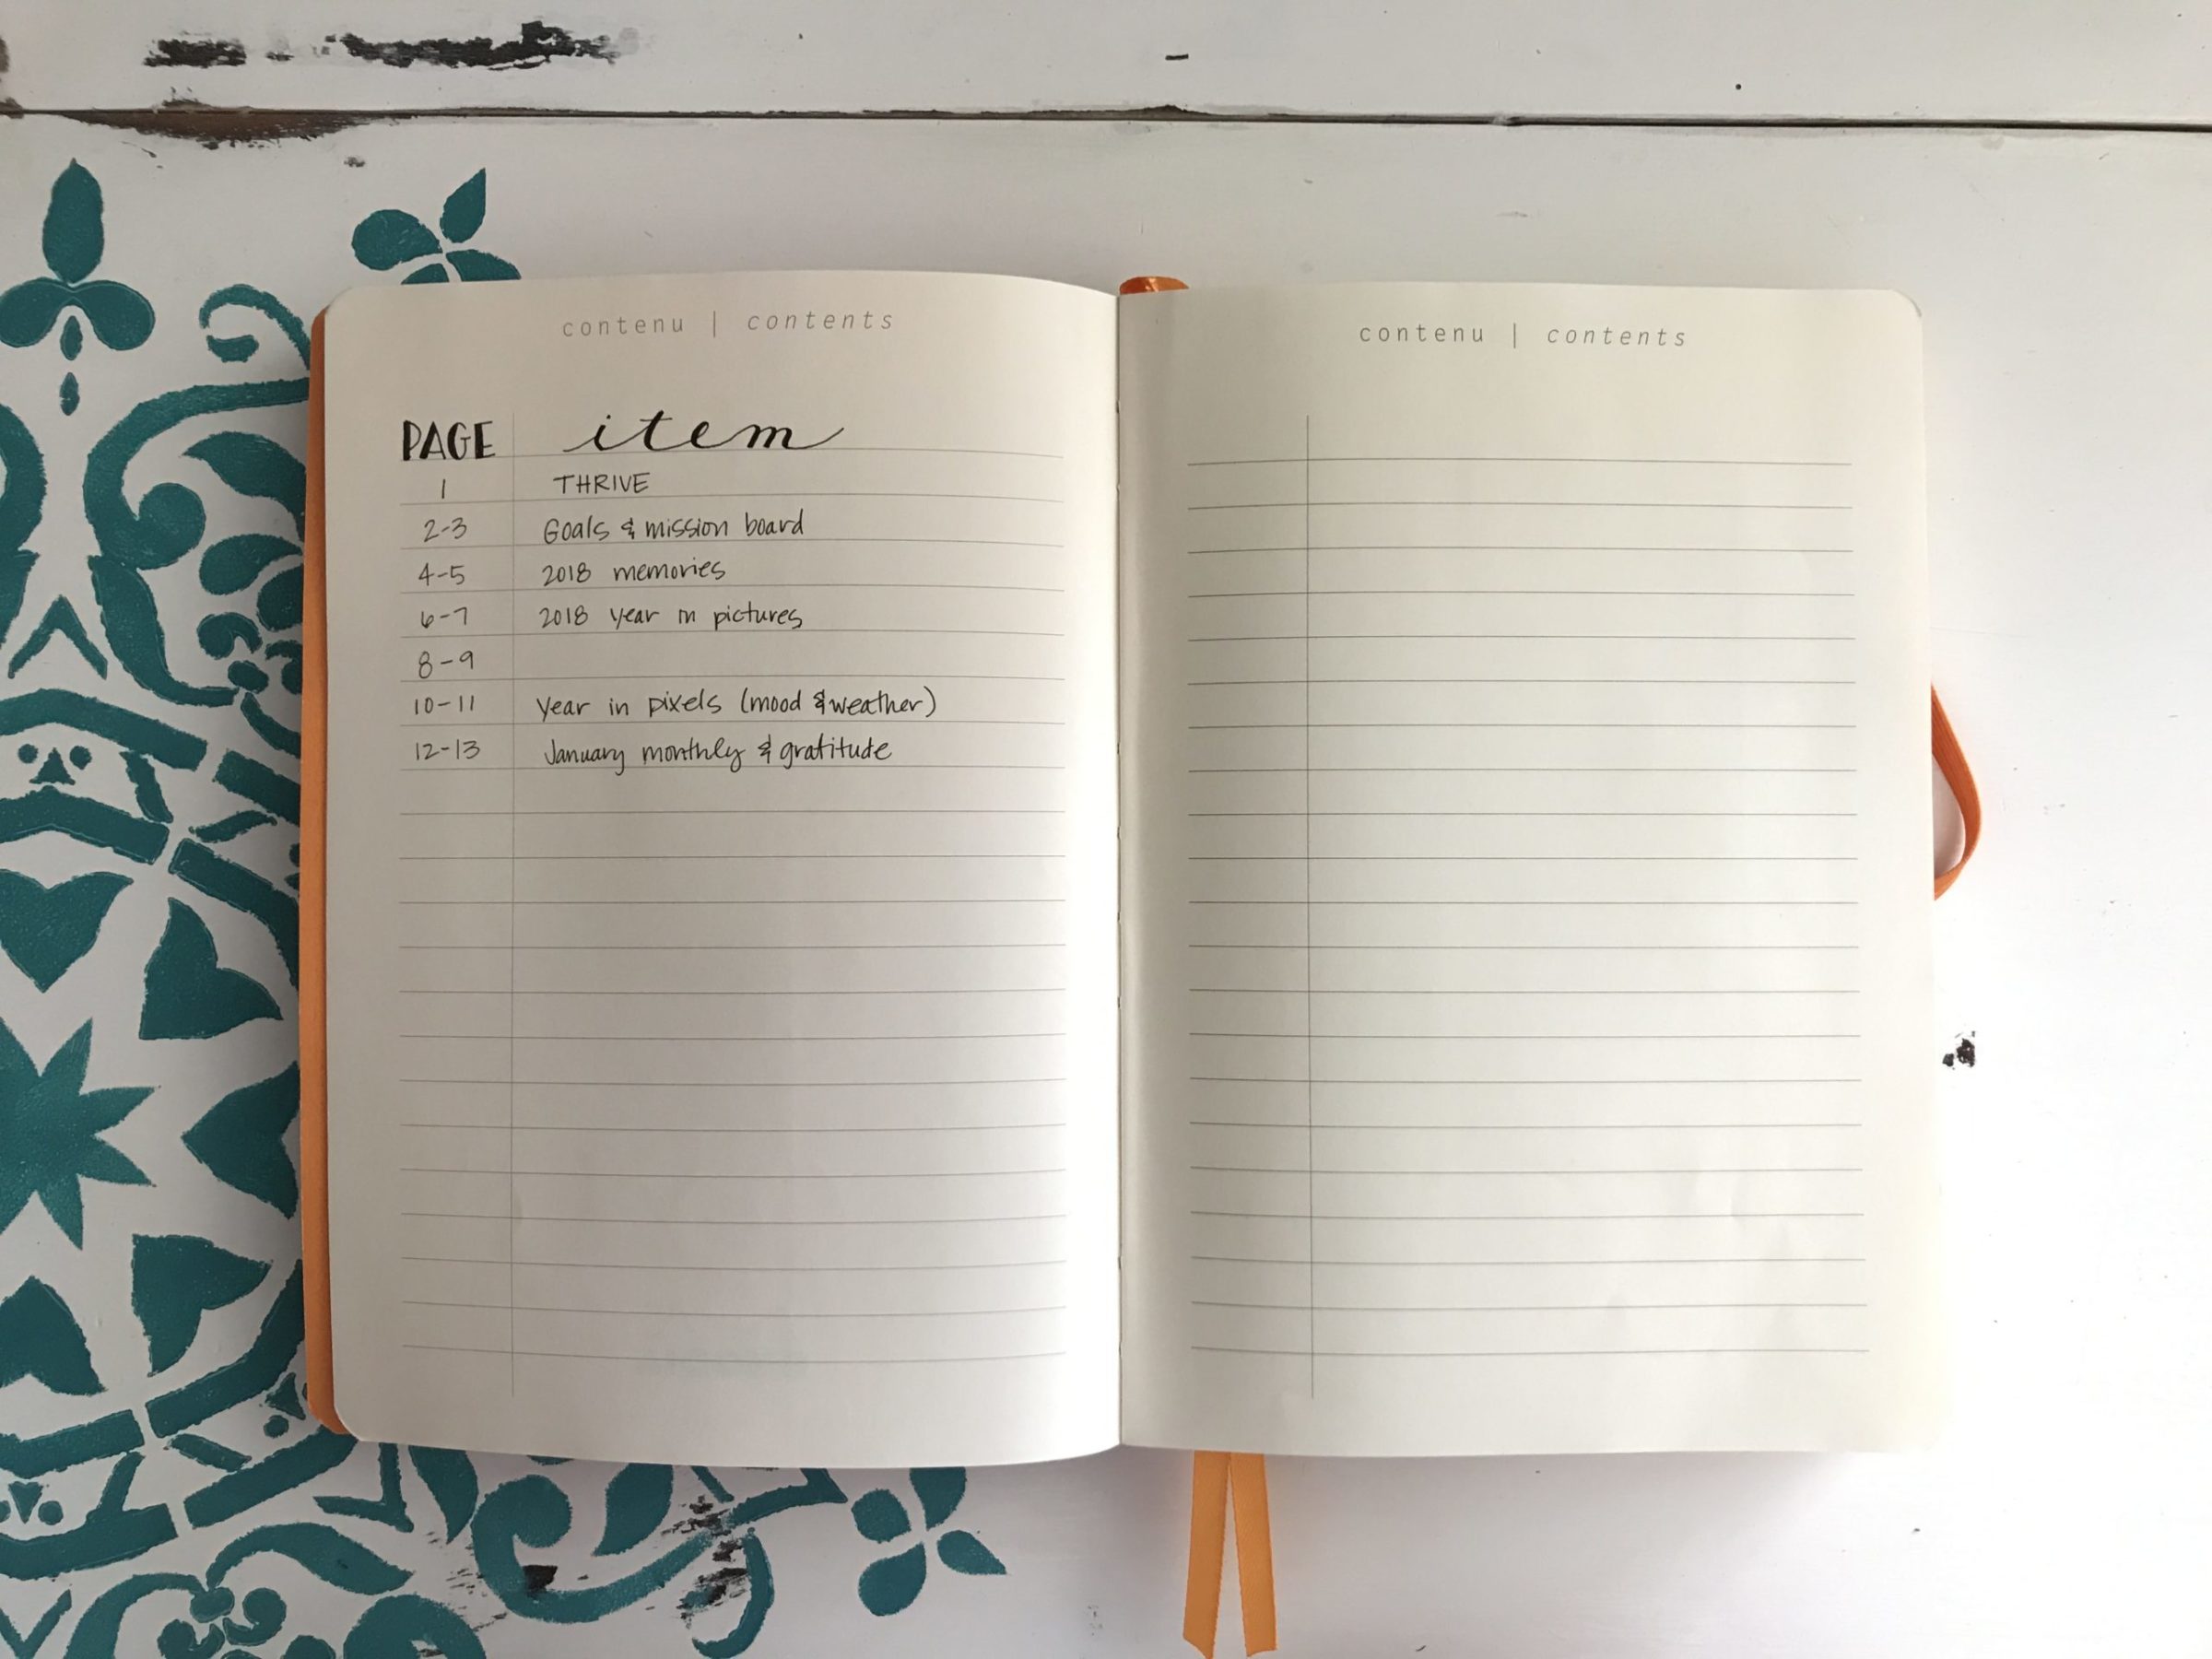 contenu | contents
PAGE item
1 THRIVE
2-3 Goals & mission board
4-5 2018 memories
6-7 2018 year in pictures
8-9
10-11 year in pixels (mood & weather)
12-13 January monthly & gratitude
contenu | contents